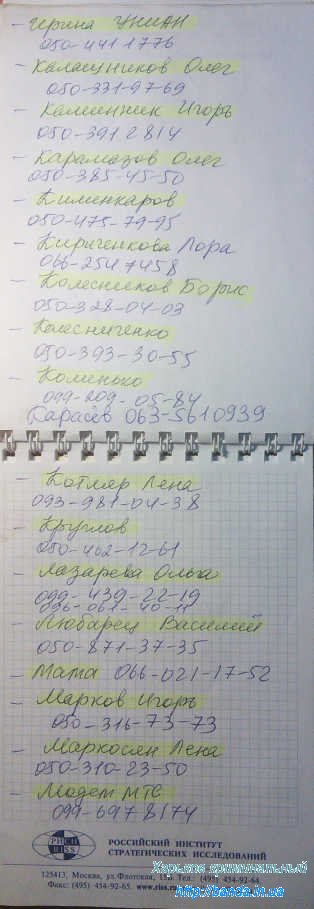 - Ирина УНИАН
050-441 1776
- Калашников Олег
050-331-97-69
- Каминник Игорь
050-391 2814
- Карамазов Олег
050-385-45-50
- Килинкаров
050-475-79-95
- Кириченкова Лора
066-254 7458
- Колесников Борис
050-328-04-03
- Колесниченко
050-393-30-55
- Коменько
099-209-05-84
Карасёв 063-5610939
- Котляр Лена
093-981-04-38
- Круглов
050-402-12-61
- Лазарева Ольга
099-439-22-19
096-061-40-11
- Любарец Василий
050-871-37-35
- Мама 066-021-17-52
- Марков Игорь
050-316-73-73
- Маркосян Лена
050-310-23-50
- Модем МТС
099-697 8174
РИСИ
RISS
РОССИЙСКИЙ ИНСТИТУТ
СТРАТЕГИЧЕСКИХ ИССЛЕДОВАНИЙ
Харьков криминальный
125413, Москва, ул. Флотская, 15Б. Тел.: (495) 454-92-64,
Факс: (495) 454-92-65. www.riss.ru